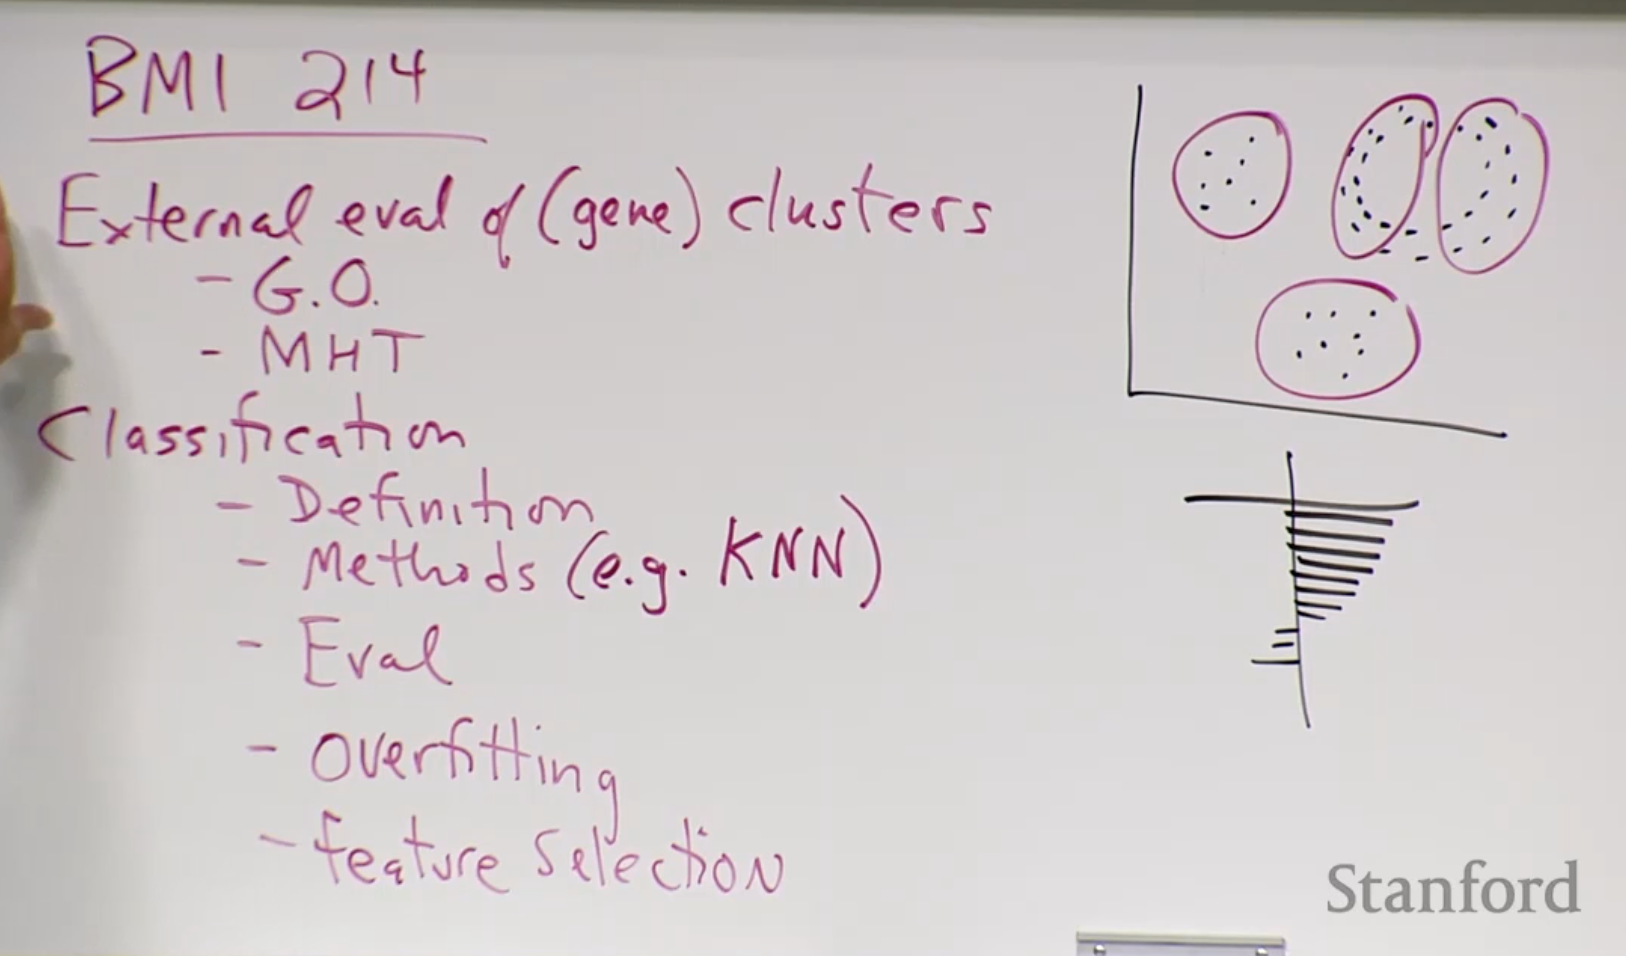 BMI 214
External eval of (gene) clusters
- G.O.
- MHT
Classification
- Definition
- Methods (e.g. KNN)
- Eval
- Overfitting
- feature selection
Stanford